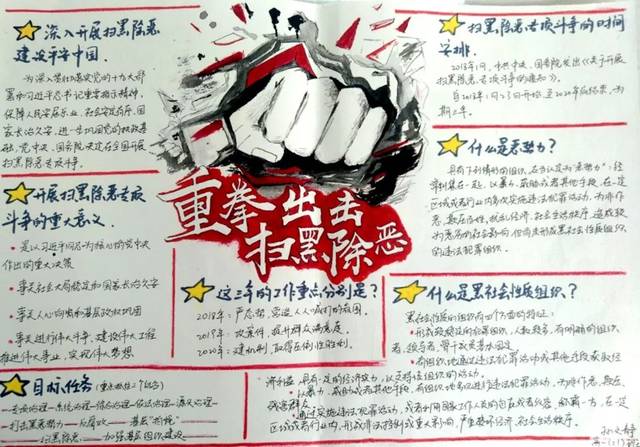 深入开展扫黑除恶
建设平安中国.
为深入贯彻落实党的十九大部
署和习近平总书记重要指示精神,
保障人民安居乐业、社会安定有序、国
家长治久安,进一步巩固党的执政基
础,党中央、国务院决定在全国开展
扫黑除恶专项斗争。
开展扫黑除恶专项
斗争的重大意义.
是以习近平同志为核心的党中央
作出的重大决策
事关社会大局稳定和国家长治久安
事关人心向背和基层政权巩固
事关进行伟大斗争、建设伟大工程
推进伟大事业、实现伟大梦想
目标任务
打击黑恶势力
扫黑除恶
加强基层组织建设
重拳出击
扫黑除恶
这三年的工作重点分别是?
2018年:
2019年:
2020年:建机制,取得压倒性胜利.
扫黑除恶专项斗争的时间
安排.
2018年1月,中共中央、国务院发出《关于开展
扫黑除恶专项斗争的通知》。
自2018年1月23日开始,至2020年底结束,为
期三年。
什么是恶势力?
具有下列情形的组织,应当认定为“恶势力”:经
常纠集在一起,以暴力、威胁或者其他手段,在一定
区域或者行业内多次实施违法犯罪活动,为非作
恶,欺压百姓,扰乱经济、社会生活秩序,造成较
为恶劣的社会影响,但尚未形成黑社会性质组织
的违法犯罪组织。
什么是黑社会性质组织?
黑社会性质的组织有四个方面的特征:
形成较稳定的犯罪组织,人数较多,有明确的组织
者、领导者,骨干成员基本固定。
有组织地通过违法犯罪活动或者其他手段获取经
济利益,具有一定的经济实力,以支持该组织的活动。
以暴力、威胁或者其他手段,有组织地多次进行违法犯罪活动,为非作恶,欺压、
残害群众。
通过实施违法犯罪活动,或者利用国家工作人员的包庇或者纵容,称霸一方,在一定
区域或者行业内,形成非法控制或重大影响,严重破坏经济、社会生活秩序。